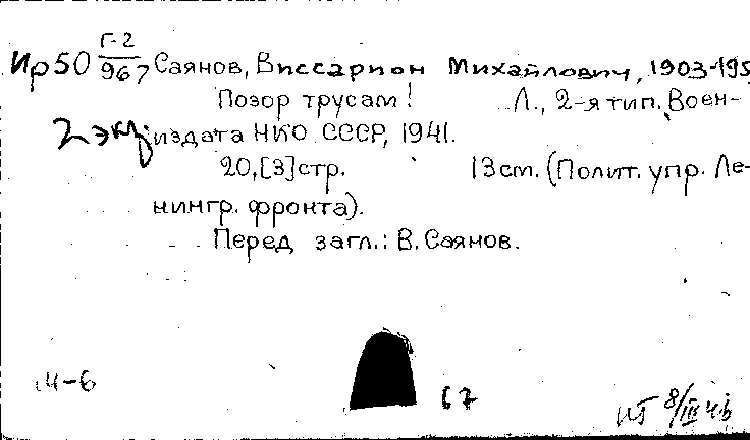 Ир50 Г-2/967 Саянов, Виссарион Михайлович, 1903-195
Позор трусам! Л., 2-я тип. Воен-
2 экз издата НКО СССР, 1941.
20,[3]стр. 13см. (Полит. упр. Ле-
нингр. фронта).
Перед загл.: В. Саянов.
М-6
67
8/III 46